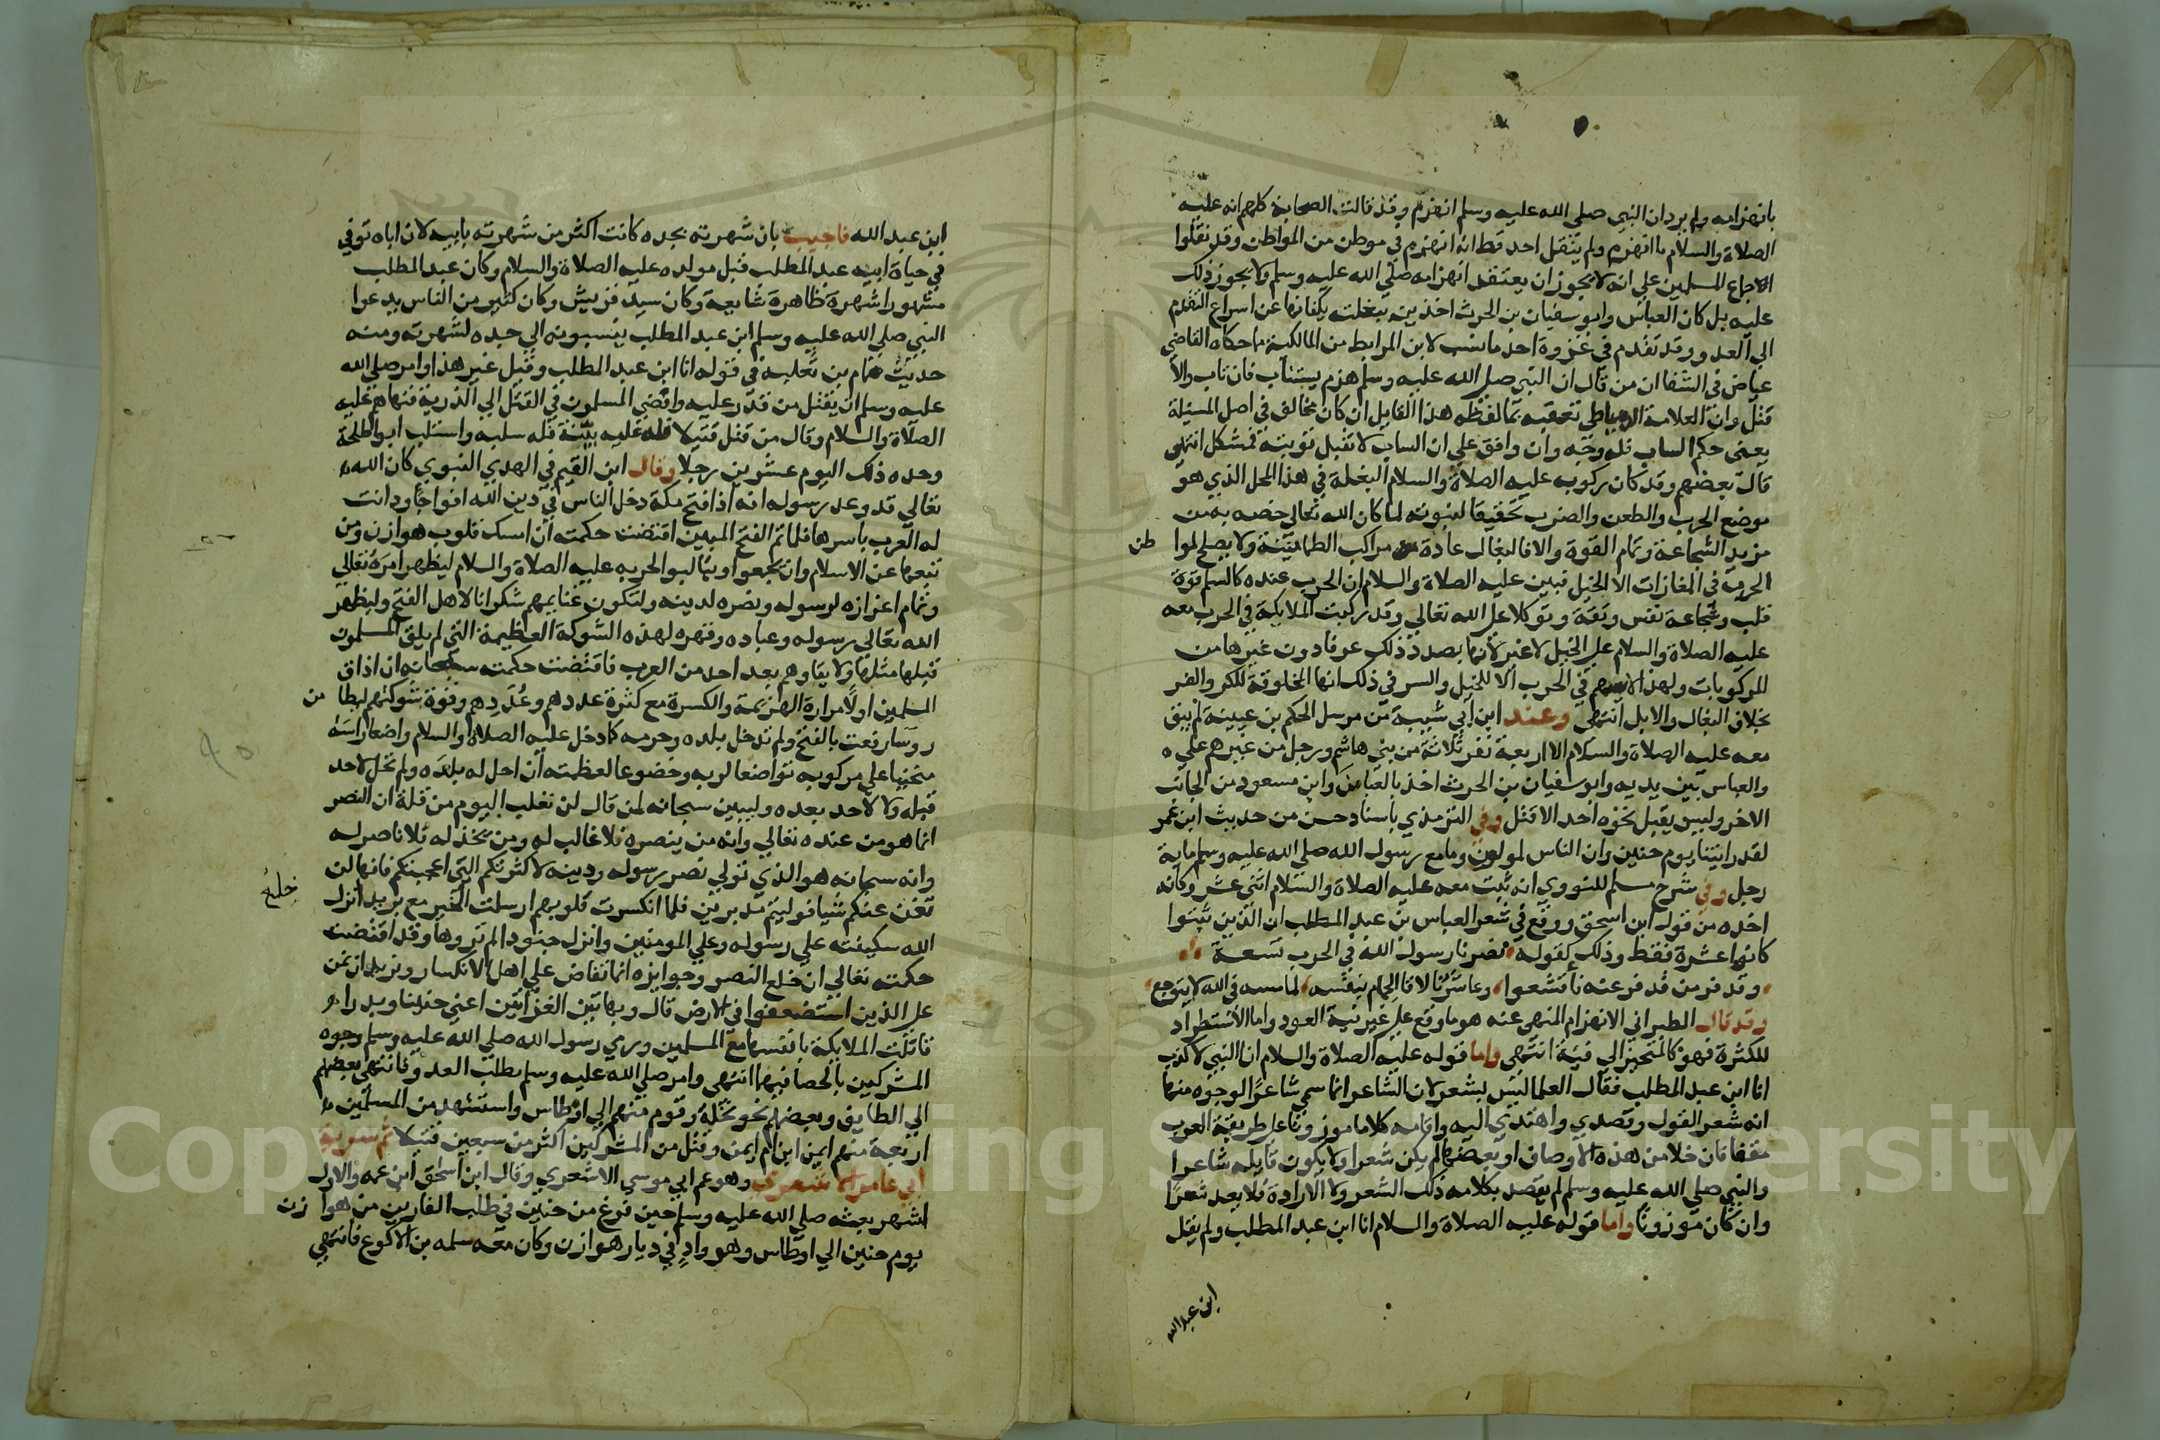 بانهزامه ولم يرد ان النبي صلى الله عليه وسلم انهزم وقد قالت الصحابة كلهم انه عليه
الصلاة والسلام ما انهزم ولم ينقل احد قط انه انهزم في موطن من المواطن وقد نقلوا
اجماع المسلمين على انه لا يجوز ان يعتقد انهزامه صلى الله عليه وسلم ولا يجوز ذلك
عليه بل كان العباس وابو سفيان بن الحرث اخذين ببغلته يكفانها عن اسراع التقدم
الي العدو وقد تقدم في غزوة احد ما نسب لابن المرابط من المالكية مما حكاه القاضي
عياض في الشفا ان من قال ان النبي صلى الله عليه وسلم هزم يستتاب فان تاب والا
قتل وان العلامة البساطي تعقبه بما لفظه هذا القايل ان كان يخالف في اصل المسيلة
يعني حكم الساب فله وجه وان وافق على ان الساب لا تقبل توبته فمشكل انتهي
قال بعضهم وقد كان ركوبه عليه الصلاة والسلام البغلة في هذا المحل الذي هو
موضع الحرب والطعن والضرب تحقيقا لنبوته لما كان الله تعالي خصه به من
مزيد الشجاعة وتمام القوة والا فالبغال عادة من مراكب الطمانينة ولا يصلح لمواطن
الحرب في العادات الا الخيل فبين عليه الصلاة والسلام ان الحرب عنده كالسلم قوة
قلب وشجاعة نفس وثقة وتوكلا على الله تعالي وقد ركبت الملايكة في الحرب معه
عليه الصلاة والسلام على الخيل لا غير لانها بصدد ذلك عرفا دون غيرها من
المركوبات ولهذا لا يسهم في الحرب الا للخيل والسر في ذلك انها المخلوقة للكر والفر
بخلاف البغال والابل انتهي وعند ابن ابي شيبة من مرسل الحكم بن عيينه لم يبق
معه عليه الصلاة والسلام الا اربعة نفر ثلاثة من بني هاشم ورجل من غيرهم علي
والعباس بين يديه وابو سفيان بن الحرث اخذ بالعنان وابن مسعود من الجانب
الاخر وليس يقبل نحوه احد الا قتل وفي الترمذي باسناد حسن من حديث ابن عمر
لقد رايتنا يوم حنين وان الناس لمولون وما مع رسول الله صلى الله عليه وسلم ماية
رجل وفي شرح مسلم للنووي انه ثبت معه عليه الصلاة والسلام اثني عشر وكانه
اخذه من قول ابن اسحق ووقع في شعر العباس بن عبد المطلب ان الذين ثبتوا
كانوا عشرة فقط وذلك لقوله نصرنا رسول الله في الحرب تسعة
وقد فر من قد فر عنه فاقشعوا وعاشرنا لاقا الحمام بنفسه لما مسه في الله لا يتوجع
وقد قال الطبراني الانهزام المنهي عنه هو ما وقع على غير نية العود واما الاستطراد
للكثرة فهو كالمتحيز الي فئة انتهي واما قوله عليه الصلاة والسلام انا النبي لا كذب
انا ابن عبد المطلب فقال العلما ليس بشعر لان الشاعر انما سمي شاعرا لوجوه منها
انه شعر القول وقصدي واهتدي اليه واتى به كلاما موزونا على طريقة العرب
مقفا فان خلا من هذه الاوصاف او بعضها لم يكن شعرا ولا يكون قايله شاعرا
والنبي صلى الله عليه وسلم لم يقصد بكلامه ذلك الشعر ولا الارادة فلا يعد شعرا
وان كان موزونا واما قوله عليه الصلاة والسلام انا ابن عبد المطلب ولم يقل
ابن عبد الله
ابن عبد الله فاجيب بان شهرته بجده كانت اكثر من شهرته بابيه لان اباه توفي
في حياة ابيه عبد المطلب قبل مولده عليه الصلاة والسلام وكان عبد المطلب
مشهورا شهرة ظاهرة شايعة وكان سيد قريش وكان كثير من الناس يدعوا
النبي صلى الله عليه وسلم ابن عبد المطلب ينسبونه الي جده لشهرته ومنه
حديث همام بن ثعلبة في قوله انا ابن عبد المطلب وقيل غير هذا وامر صلى الله
عليه وسلم ان يقتل من قدر عليه وافضي المسلمون في القتل الي الذرية فنهاهم عليه
الصلاة والسلام وقال من قتل قتيلا له عليه بينة فله سلبه واستلب ابو طلحة
وحده ذلك اليوم عشرين رجلا وقال ابن القيم في الهدي النبوي كان الله
تعالي قد وعد رسوله انه اذا فتح مكة دخل الناس في دين الله افواجا ودانت
له العرب باسرها فلما تم الفتح المبين اقتضت حكمته ان امسك قلوب هوازن ومن
تبعها عن الاسلام وان يجمعوا ويتالبوا لحربه عليه الصلاة والسلام ليظهر امره تعالي
وتمام اعزازه لرسوله ونصره لدينه ولتكون غنايمهم شكرانا لاهل الفتح وليظهر
الله تعالي رسوله وعباده وقهره لهذه الشوكة العظيمة التي لم يلق المسلمون
قبلها مثلها ولا يقاومهم بعد احد من العرب فاقتضت حكمته سبحانه ان اذاق
المسلمين اولا مرارة الهزيمة والكسرة مع كثرة عددهم وعددهم وقوة شوكتهم ليطامن
روسا رفعت بالفتح ولم تدخل بلده وحرمه كما دخل عليه الصلاة والسلام واضعا راسه
منحنيا علي مركوبه تواضعا لربه وخضوعا لعظمته ان احل له بلده ولم تحل لاحد
قبله ولا لاحد بعده وليبين سبحانه لمن قال لن نغلب اليوم من قلة ان النصر
انما هو من عنده تعالي وانه من ينصره فلا غالب له ومن يخذله فلا ناصر له
وانه سبحانه هو الذي تولي نصر رسوله ودينه لا كثرتكم التي اعجبتكم فانها لن
تغن عنكم شيا فوليتم مدبرين فلما انكسرت قلوبهم ارسلت اليها خلع الجبر مع بريد انزل
الله سكينته علي رسوله وعلي المومنين وانزل جنودا لم تروها وقد اقتضت
حكمته تعالي ان خلع النصر وجوايزه انما تفاض علي اهل الانكسار ونريد ان نمن
على الذين استضعفوا في الارض قال وبها بين الغزاتين اعني حنينا وبدرا
قاتلت الملايكة بانفسها مع المسلمين ورمي رسول الله صلى الله عليه وسلم وجوه
المشركين بالحصا فيهما انتهي وامر صلى الله عليه وسلم بطلب العدو فانتهي بعضهم
الي الطايف وبعضهم نحو نخلة وقوم منهم الي اوطاس واستشهد من المسلمين
اربعة منهم ايمن ابن ام ايمن وقتل من المشركين اكثر من سبعين قتيلا ثم سرية
ابي عامر الاشعري وهو عم ابي موسي الاشعري وقال ابن اسحق ابن عمه والاول
اشهر بعثه صلى الله عليه وسلم حين فرغ من حنين في طلب الفارين من هوازن
يوم حنين الي اوطاس وهو واد في ديار هوازن وكان معه سلمه بن الاكوع فانتهي
Copy King S ersity